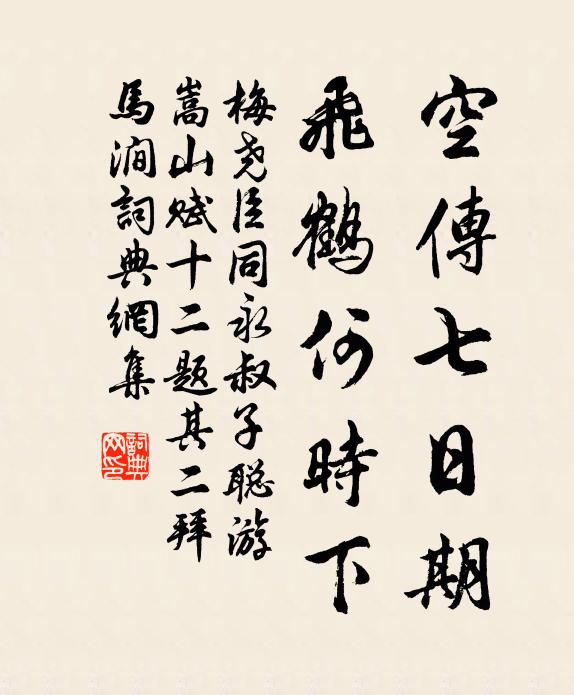 空傳七日期
飛鶴何時下
梅堯臣同永叔子聡游
嵩山賦十二題其二拜
馬澗詞典網集
詞典
网印